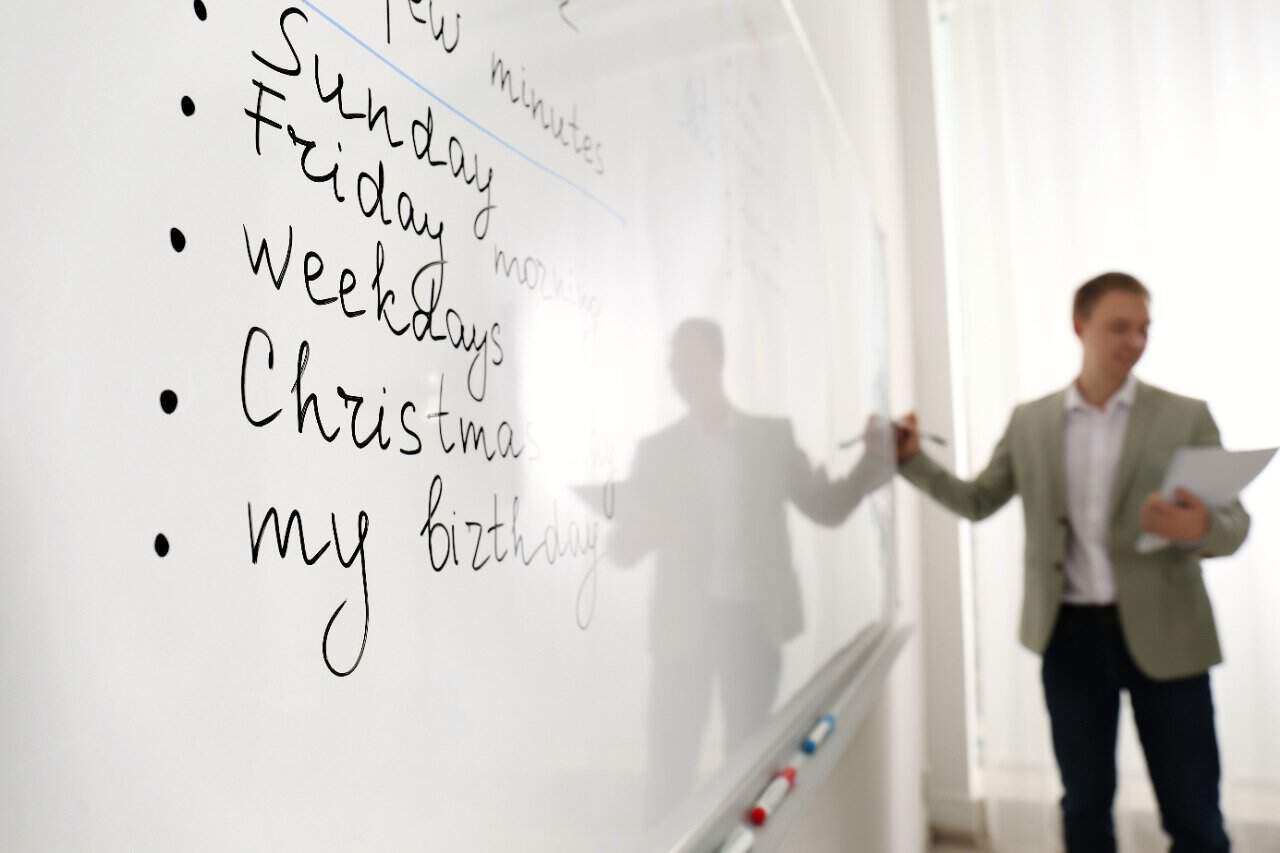 few minutes
• Sunday
• Friday morning
• weekdays
• Christmas
• my birthday